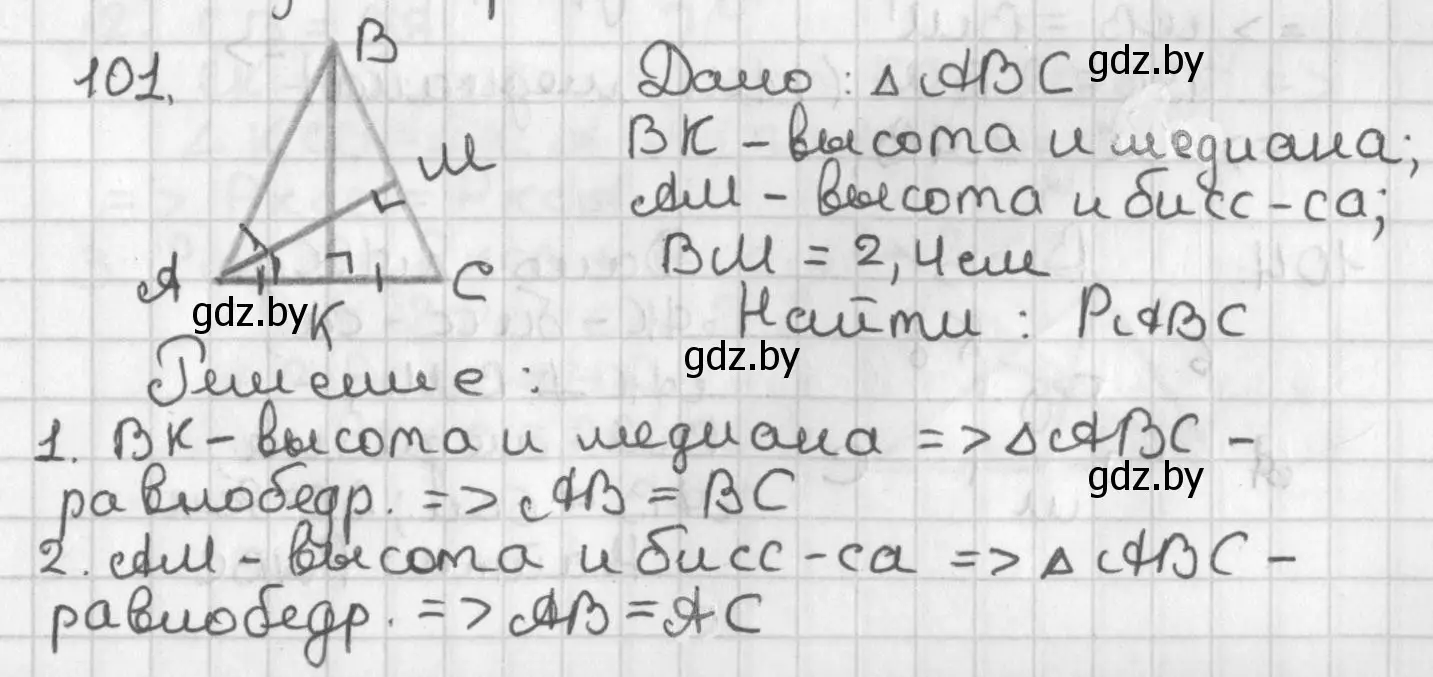 101.
B
M
A
C
K
Дано: △ABC
BK - высота и медиана;
AM - высота и бисс-са;
BM = 2,4 см
Найти: PABC
Решение:
1. BK - высота и медиана => △ABC -
равнобедр. => AB = BC
2. AM - высота и бисс-са => △ABC -
равнобедр. => AB = AC
gdz.by
gdz.by
gdz.by
gdz.by